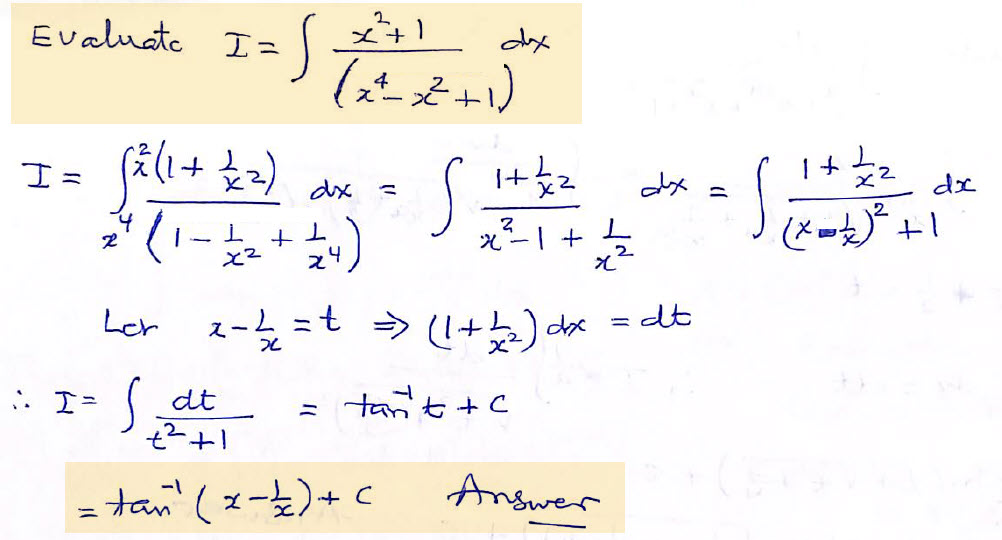 Evaluate I = ∫ (x²+1)/(x⁴-x²+1) dx
I = ∫ x²(1+1/x²)/(x⁴(1-1/x²+1/x⁴)) dx = ∫ (1+1/x²)/(x²-1+1/x²) dx = ∫ (1+1/x²)/((x-1/x)²+1) dx
Let x-1/x = t ⇒ (1+1/x²) dx = dt
∴ I = ∫ dt/(t²+1) = tan⁻¹t + C
= tan⁻¹(x-1/x) + C Answer